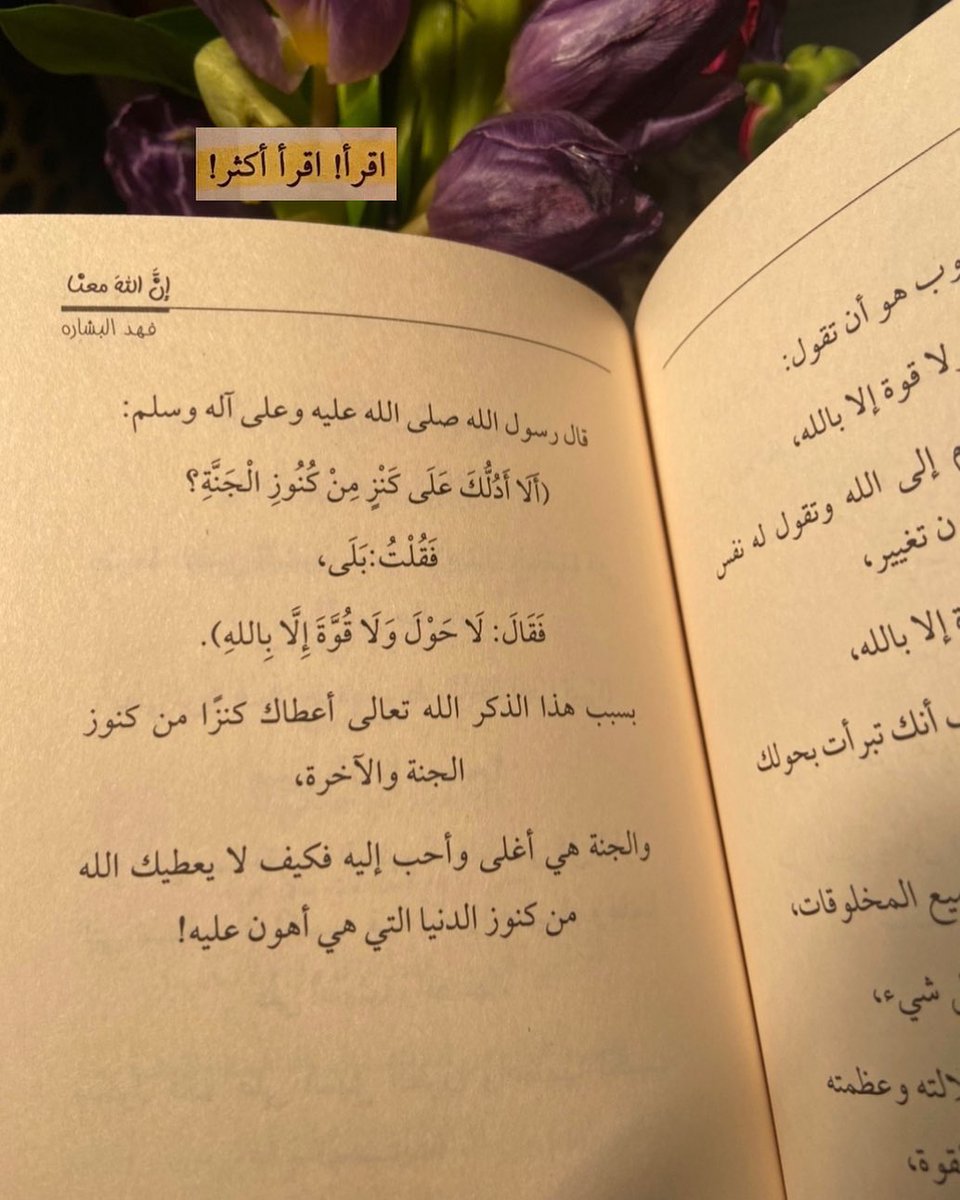 اقرأ! اقرأ أكثر!
إنَّ اللهَ معنْا
فهد البشاره
قال رسول الله صلى الله عليه وعلى آله وسلم:
(أَلَا أَدُلُّكَ عَلَى كَنْزٍ مِنْ كُنُوزِ الْجَنَّةِ؟
فَقُلْتُ:بَلَى،
فَقَالَ: لَا حَوْلَ وَلَا قُوَّةَ إِلَّا بِاللهِ).
بسبب هذا الذكر الله تعالى أعطاك كنزًا من كنوز
الجنة والآخرة،
والجنة هي أغلى وأحب إليه فكيف لا يعطيك الله
من كنوز الدنيا التي هي أهون عليه!
هو أن تقول:
قوة إلا بالله،
إلى الله وتقول له نفس
تغيير،
إلا بالله،
أنك تبرأت بحولك
المخلوقات،
شيء،
وعظمته